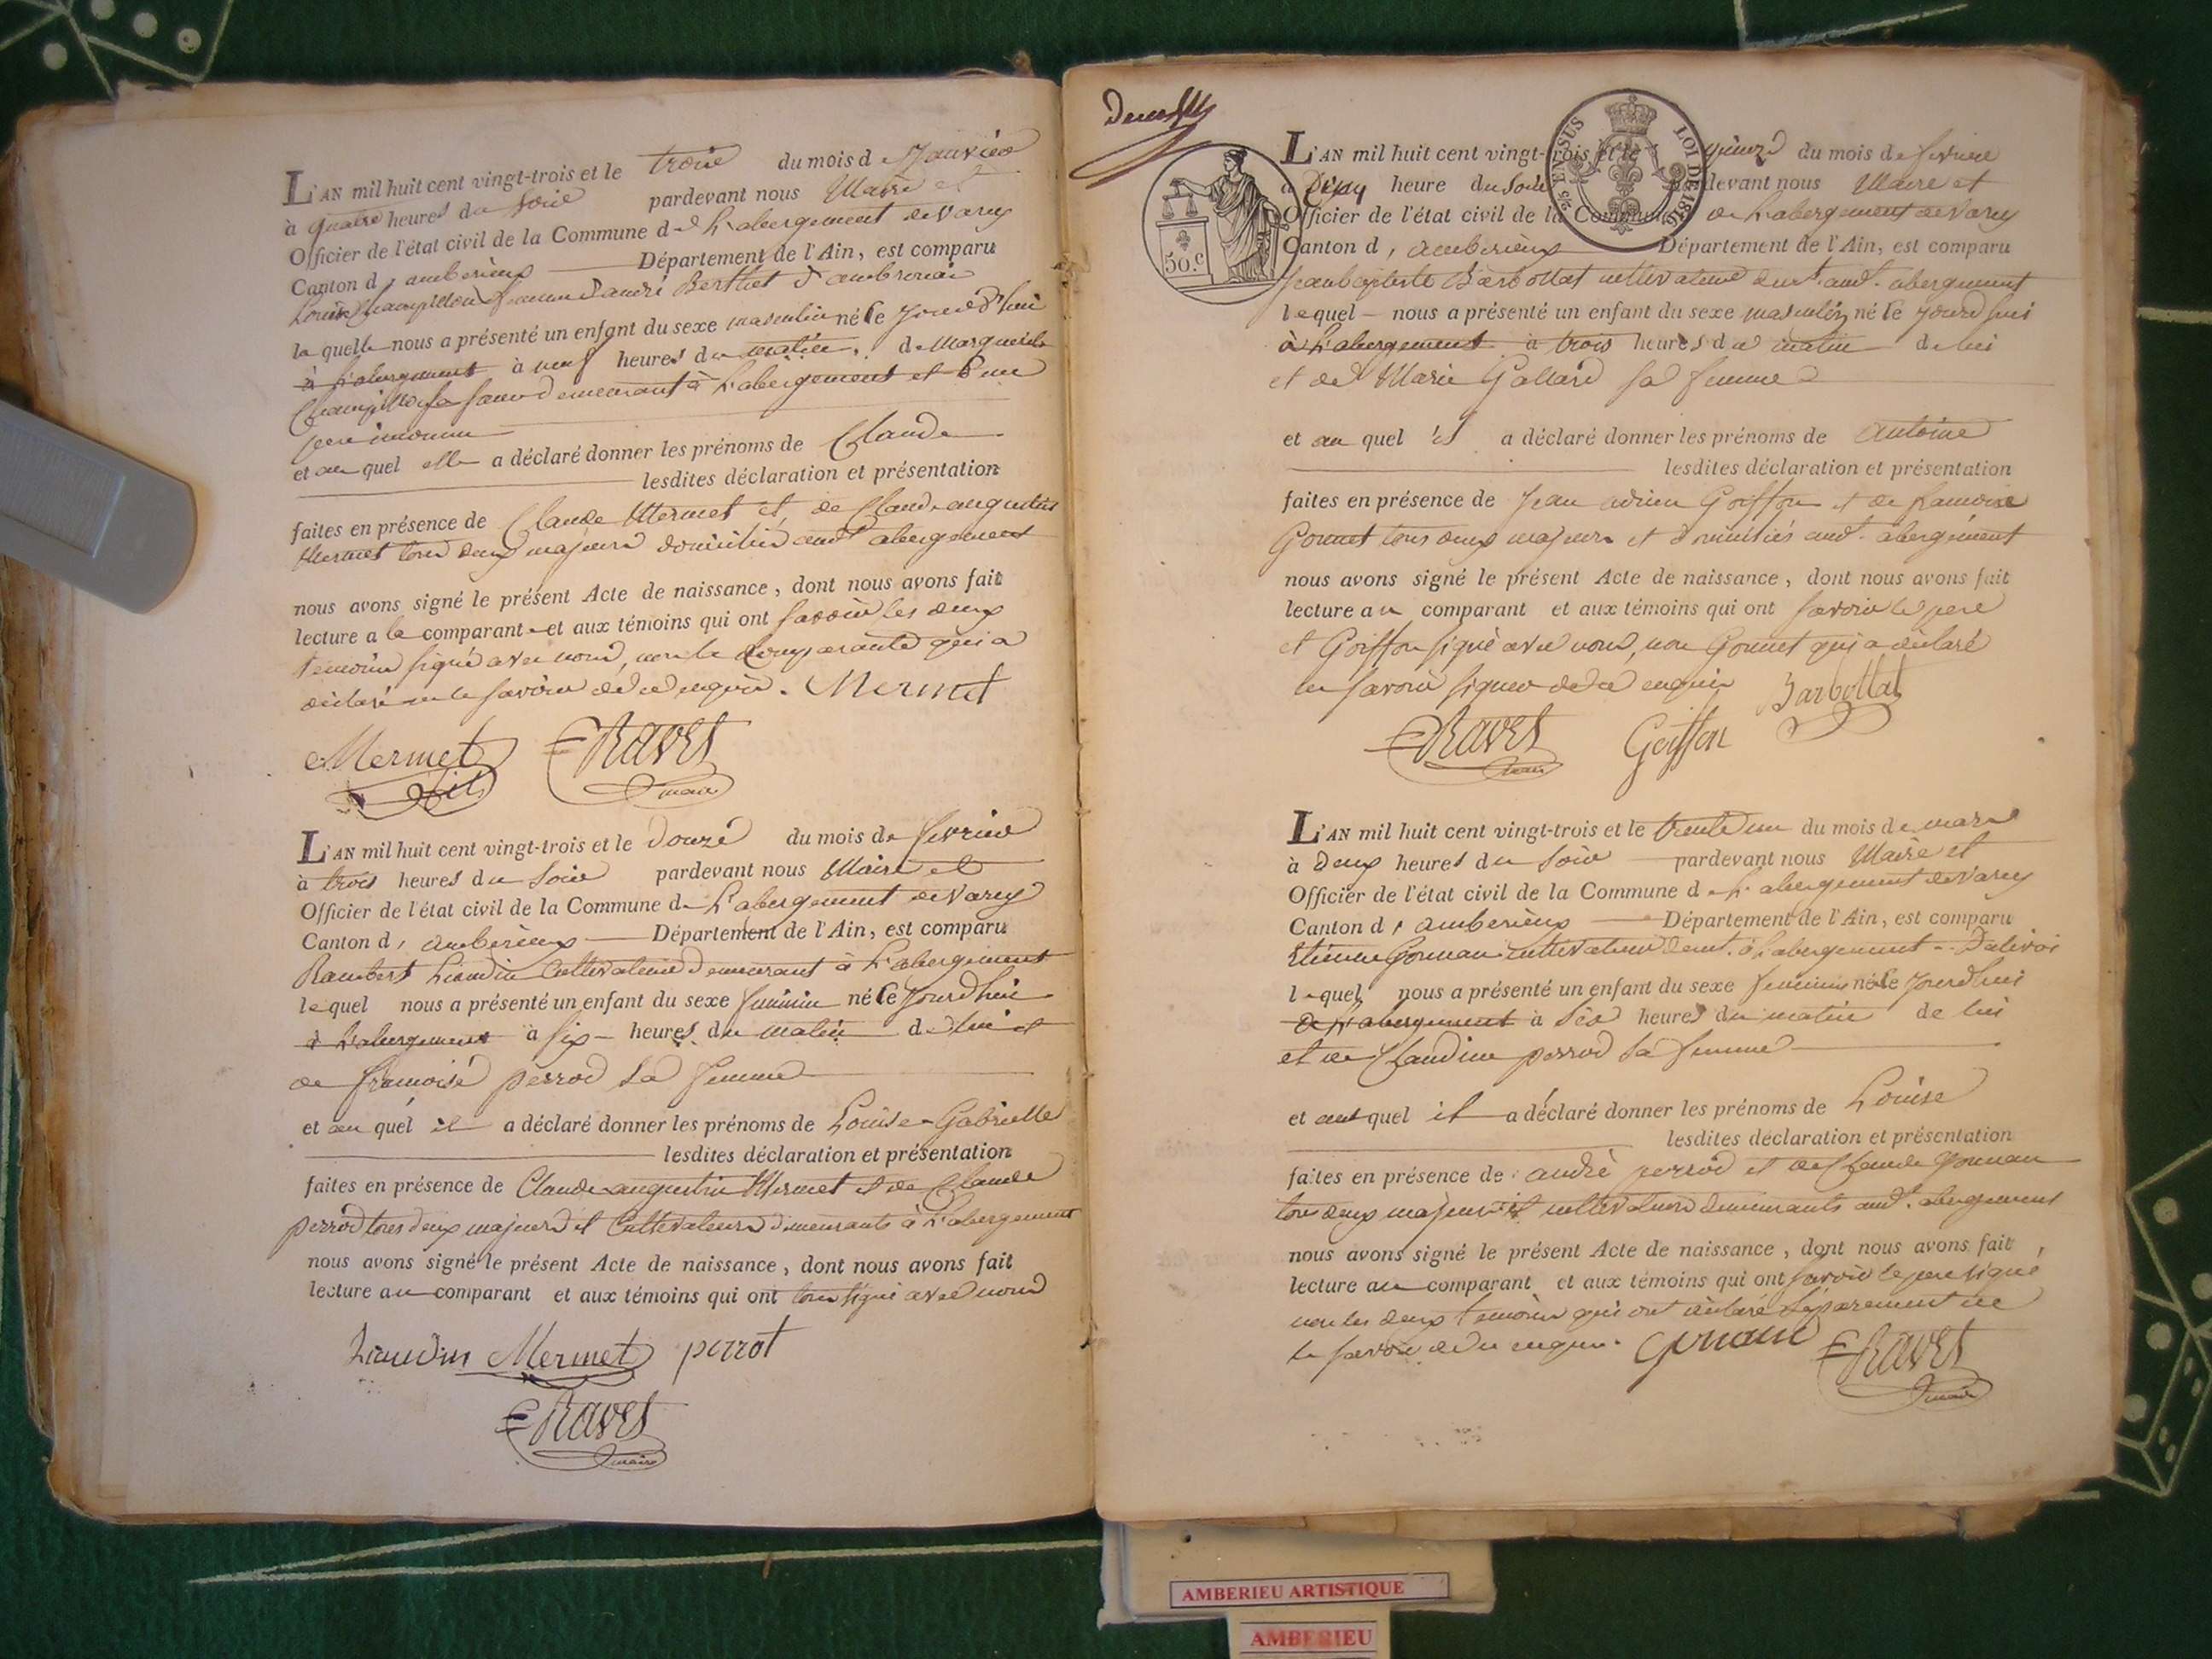 L'AN mil huit cent vingt-trois et le du mois d Janvier
à quatre heures du Soir pardevant nous Maire et
Officier de l'état civil de la Commune de L'abergement de Varey
Canton d'amberieux Département de l'Ain, est comparu
Louise femme d'andré Berthet d'ambronai
la quelle nous a présenté un enfant du sexe masculin né Ce jourd'hui
à L'abergement à neuf heures du matin, de Marguerite
demeurant à L'abergement et d'un
pere inconnu
et au quel elle a déclaré donner les prénoms de Claude
lesdites déclaration et présentation
faites en présence de Claude Mermet et de Claude augustin
Mermet tous deux majeurs domiciliés audt abergement
nous avons signé le présent Acte de naissance, dont nous avons fait
lecture a la comparante et aux témoins qui ont savoir les deux
temoins signé avec nous, non la Comparante qui a
déclaré ne le savoir de ce enquise. Mermet
Mermet fils ERavet
maire
L'AN mil huit cent vingt-trois et le douze du mois de fevrier
à trois heures du Soir pardevant nous Maire et
Officier de l'état civil de la Commune de L'abergement de Varey
Canton d'amberieux Département de l'Ain, est comparu
Rambert Liaudin Cultivateur demeurant à L'abergement
lequel nous a présenté un enfant du sexe feminin né Ce jourdhui
à L'abergement à six heures du matin de lui et
de françoise perrod sa femme
et au quel il a déclaré donner les prénoms de Louise-Gabrielle
lesdites déclaration et présentation
faites en présence de Claude augustin Mermet et de Claude
perrod tous deux majeurs et Cultivateurs demeurants à L'abergement
nous avons signé le présent Acte de naissance, dont nous avons fait
lecture au comparant et aux témoins qui ont tous signé avec nous
Liaudin Mermet perrot
ERavet
maire
50.c
25 EN SUS LOI DE 1816
L'AN mil huit cent vingt-trois et le quinze du mois de fevrier
à heure du Soir pardevant nous Maire et
Officier de l'état civil de la Commune de L'abergement de Varey
Canton d'amberieux Département de l'Ain, est comparu
Jean baptiste Barbottat cultivateur demt audt abergement
lequel nous a présenté un enfant du sexe masculin né Ce jourdhui
à L'abergement à trois heures du matin de lui
et de Marie Gallard sa femme
et au quel il a déclaré donner les prénoms de antoine
lesdites déclaration et présentation
faites en présence de Jean Goiffon et de francois
Gonnet tous deux majeurs et domiciliés audt abergement
nous avons signé le présent Acte de naissance, dont nous avons fait
lecture au comparant et aux témoins qui ont savoir le pere
et Goiffon signé avec nous, non Gonnet qui a déclaré
ne savoir signer de ce enquis Barbottat
ERavet Goiffon
maire
L'AN mil huit cent vingt-trois et le trente un du mois de mars
à deux heures du Soir pardevant nous Maire et
Officier de l'état civil de la Commune de L'abergement de Varey
Canton d'amberieux Département de l'Ain, est comparu
Etienne cultivateur demt. à L'abergement
lequel nous a présenté un enfant du sexe feminin né Ce jourdhui
à L'abergement à heures du matin de lui
et de Claudine perrod sa femme
et au quel il a déclaré donner les prénoms de Louise
lesdites déclaration et présentation
faites en présence de andré perrod et de Claude
tous deux majeurs et cultivateurs demeurants audt. abergement
nous avons signé le présent Acte de naissance, dont nous avons fait
lecture au comparant et aux témoins qui ont savoir le pere signé
non les deux temoins qui ont déclaré séparement ne
le savoir de ce enquis. ERavet
maire
AMBERIEU ARTISTIQUE
AMBERIEU